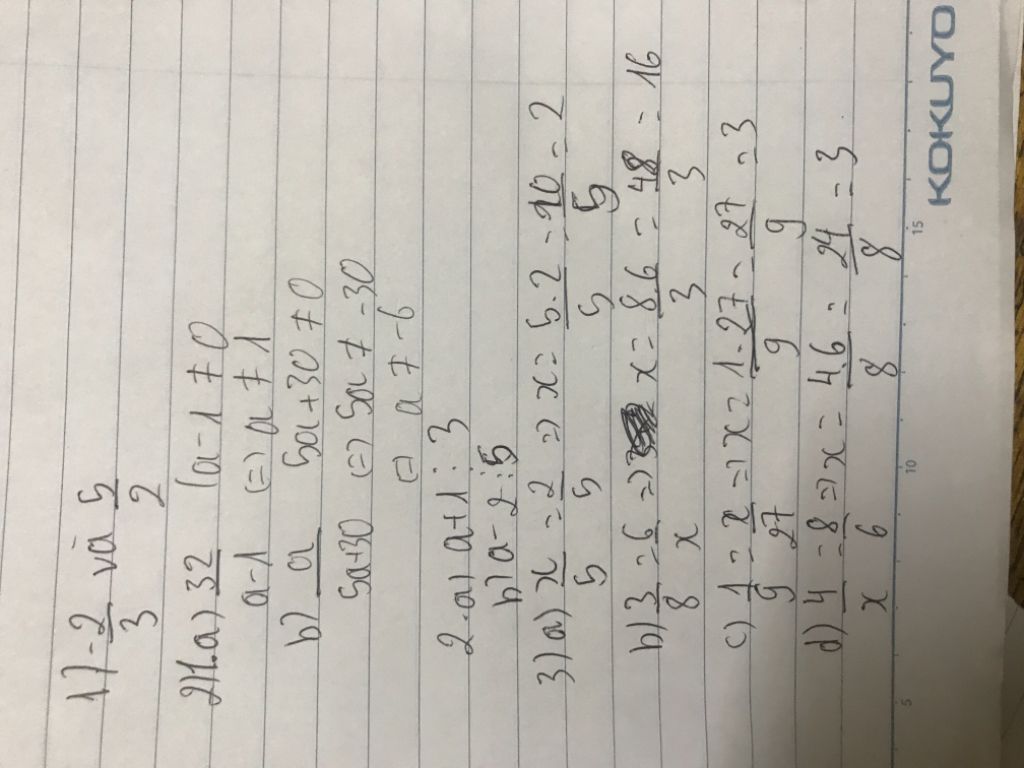 1) -2/3 và 5/2
2)1.a) 32/a-1 (a-1 ≠ 0
(=) a ≠ 1
b) a/5a+30 5a+30 ≠ 0
(=) 5a ≠ -30
(=) a ≠ -6
2.a) a+1 ⋮ 3
b) a-2 ⋮ 5
3) a) x/5 = 2/5 => x = 5.2/5 = 10/5 = 2
b) 3/8 = 6/x => x = 8.6/3 = 48/3 = 16
c) 1/9 = x/27 => x = 1.27/9 = 27/9 = 3
d) 4/x = 8/6 => x = 4.6/8 = 24/8 = 3
5 10 15
KOKUYO